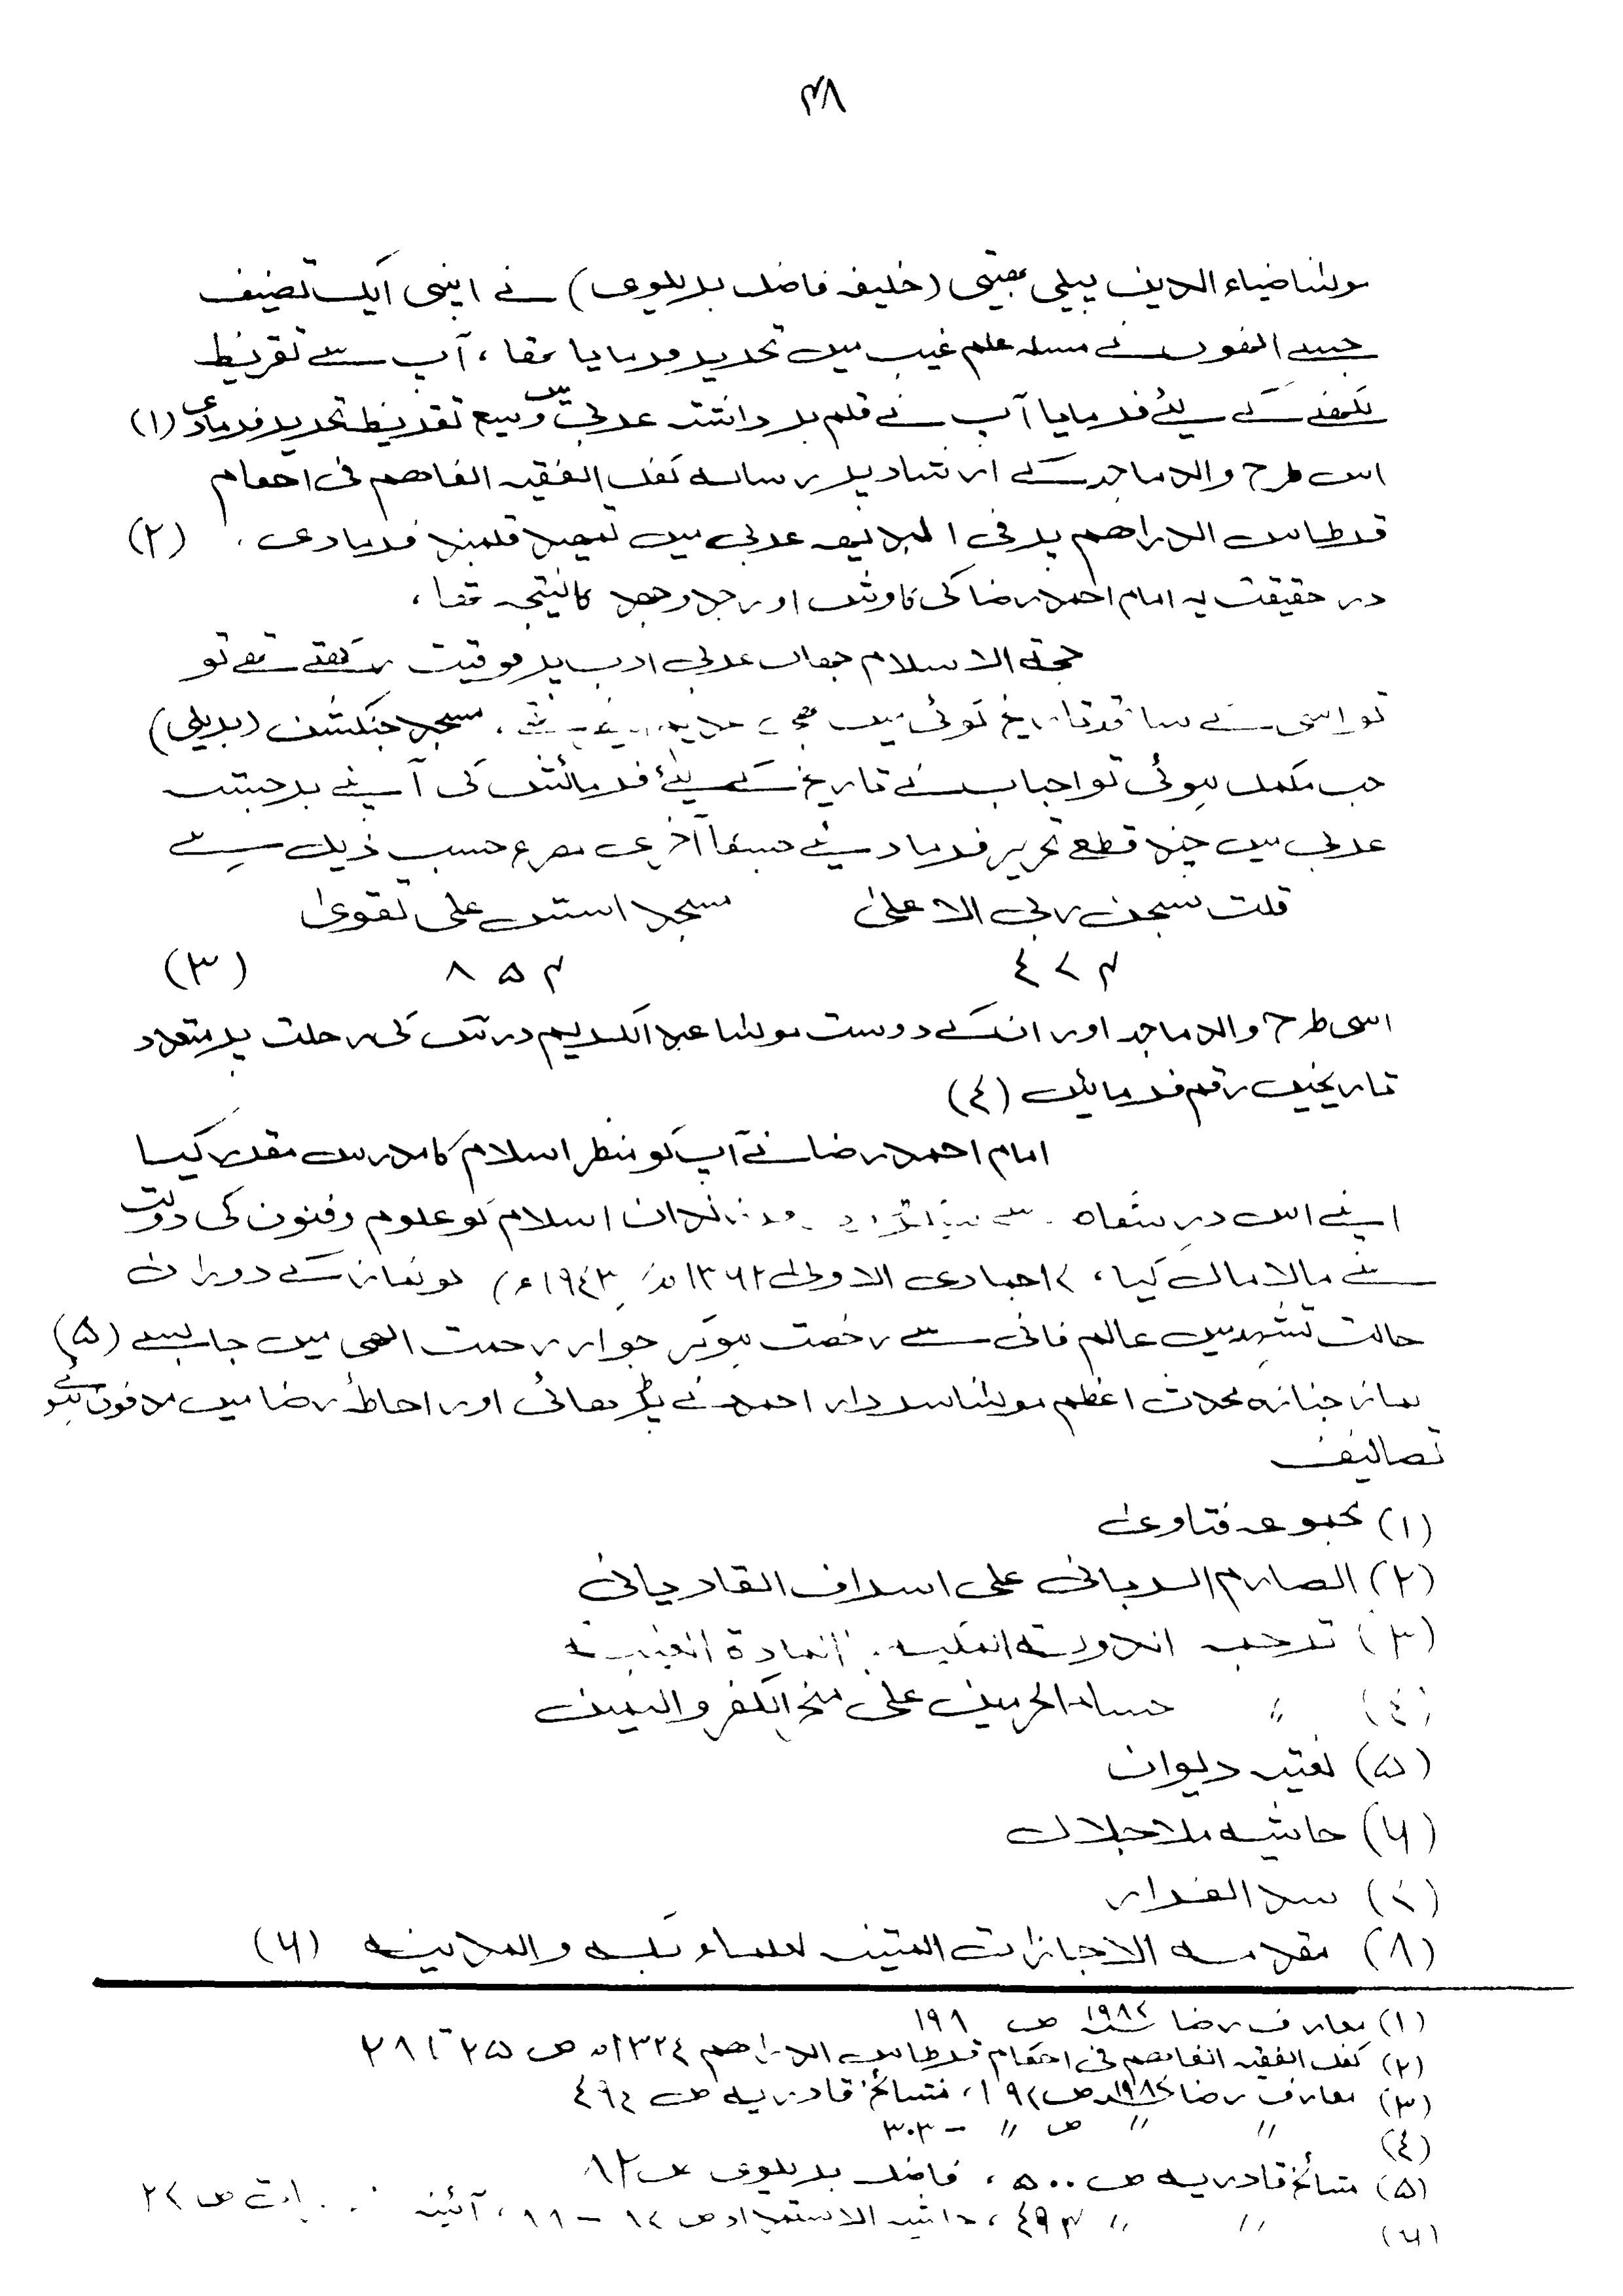 ۳۸
مولٰنا ضیاء الدین پیلی بھیتی (خلیفہ فاضل بریلوی) نے اپنی ایک تصنیف
جسے انھوں نے مسئلہ علم غیب میں تحریر فرمایا تھا، آپ سے تقریظ
لکھنے کے لئے فرمایا آپ نے قلم برداشتہ عربی میں وسیع تقریظ تحریر فرمادی (۱)
اس طرح والد ماجد کے ارشاد پر رسالہ کفل الفقیہ الفاھم فی احکام
قرطاس الدراھم پر فی البدیھہ عربی میں تمھید قلمبند فرمادی۔ (۲)
در حقیقت یہ امام احمد رضا کی کاوش اور جدوجھد کا نتیجہ تھا،
حجۃ الاسلام جھاں عربی ادب پر فوقیت رکھتے تھے تو
تو اسی کے ساتھ تاریخ گوئی میں بھی مسجد جنکشن (بریلی)
جب مکمل ہوئی تو احباب نے تاریخ کے لئے فرمائش کی آپنے برجستہ
عربی میں چند قطع تحریر فرمادیئے جسکا آخری مصرع حسب ذیل ہے
قلت سبحٰن ربی الاعلیٰ مسجد اسس علی تقویٰ
۴ ۷ ۴ ۸ ۵ ۴ (۳)
اسی طرح والد ماجد اور انکے دوست مولٰنا عبدالکریم درس کی رحلت پر متعدد
تاریخیں رقم فرمائیں (۴)
امام احمد رضا نے آپ کو منظر اسلام کا مدرس مقرر کیا
اپنے اس درسگاہ سے فرزندان اسلام کو علوم وفنون کی دولت
سے مالامال کیا، ۱۷جمادی الاولیٰ ۱۳۶۲ھ/ ۱۹۴۳ء/ کو نماز کے دوران
حالت تشہد میں عالم فانی سے رخصت ہوکر جوار رحمت الھی میں جا بسے (۵)
نماز جنازہ محدث اعظم مولٰنا سردار احمد نے پڑھائی اور احاطۂ رضا میں مدفون ہوئے
تصالیف
(۱) مجموعہ فتاویٰ
(۲) الصارم الربانی علی اسراف القادیانی
(۳) ترجمہ الدولۃ المکیہ بالمادۃ الغیبیۃ
(۴) 〃 حسام الحرمین علی منحر الکفر والمین
(۵) نعتیہ دیوان
(۶) حاشیہ ملا جلال
(۷) سد الفرار
(۸) مقدمہ الاجازات المتینہ لعلماء بکہ والمدینہ (۶)
(۱) معارف رضا ۱۹۸۷ ص ۱۹۸
(۲) کفل الفقیہ الفاھم فی احکام قرطاس الدراھم ۱۳۲۴ھ ص ۲۵ تا ۲۸
(۳) معارف رضا ۱۹۸۷ ص ۱۹۸، مشائخ قادریہ ص ۴۹۷
(۴) 〃 〃 ص 〃 - ۳۰۳
(۵) مشائخ قادریہ ص ۵۰۰، فاضل بریلوی ص ۸۲
(۶) 〃 〃 ۴۹۴، حاشیہ الاستمداد ص ۸۷ - ۸۸، آئینہ ص ۲۷